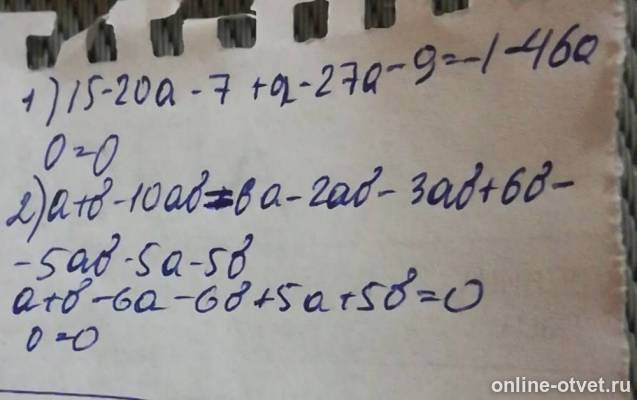 1) 15-20a-7+a-27a-9=-1-46a
0=0
2) a+b-10ab=6a-2ab-3ab+6b-
-5ab-5a-5b
a+b-6a-6b+5a+5b=0
0=0
online-otvet.ru